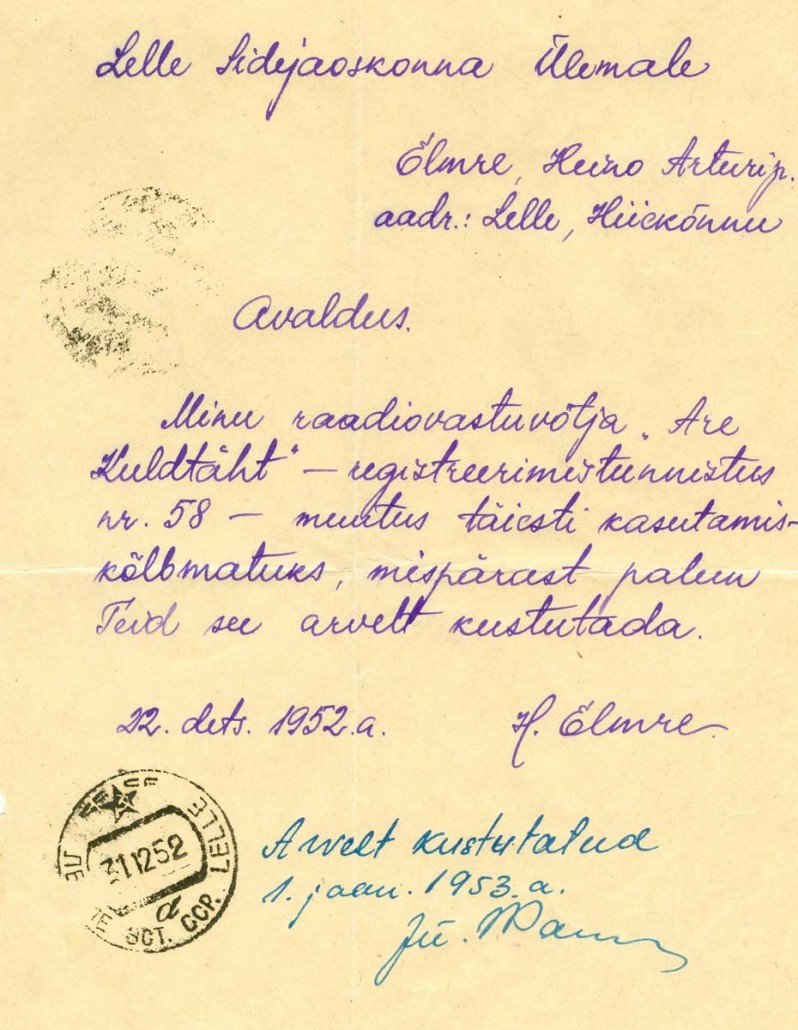 Lelle Sidejaoskonna Ülemale
Elmre, Heino Arturip.
aadr.: Lelle, Hiiekõnnu
Avaldus.
Minu raadiovastuvõtja „Are
Kuldtäht" – registreerimistunnistus
nr. 58 – muutus täiesti kasutamis-
kõlbmatuks, mispärast palun
Teid see arvelt kustutada.
22. dets. 1952.a. H. Elmre
LELLE
311252
a
ЭСТ. ССР.
Arvelt kustutatud
1. jaan. 1953.a.